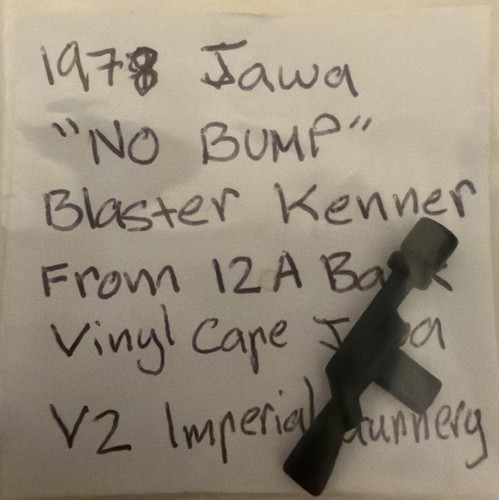 1978 Jawa
"NO BUMP"
Blaster Kenner
From 12A Back
Vinyl Cape Jawa
V2 Imperial Gunnery